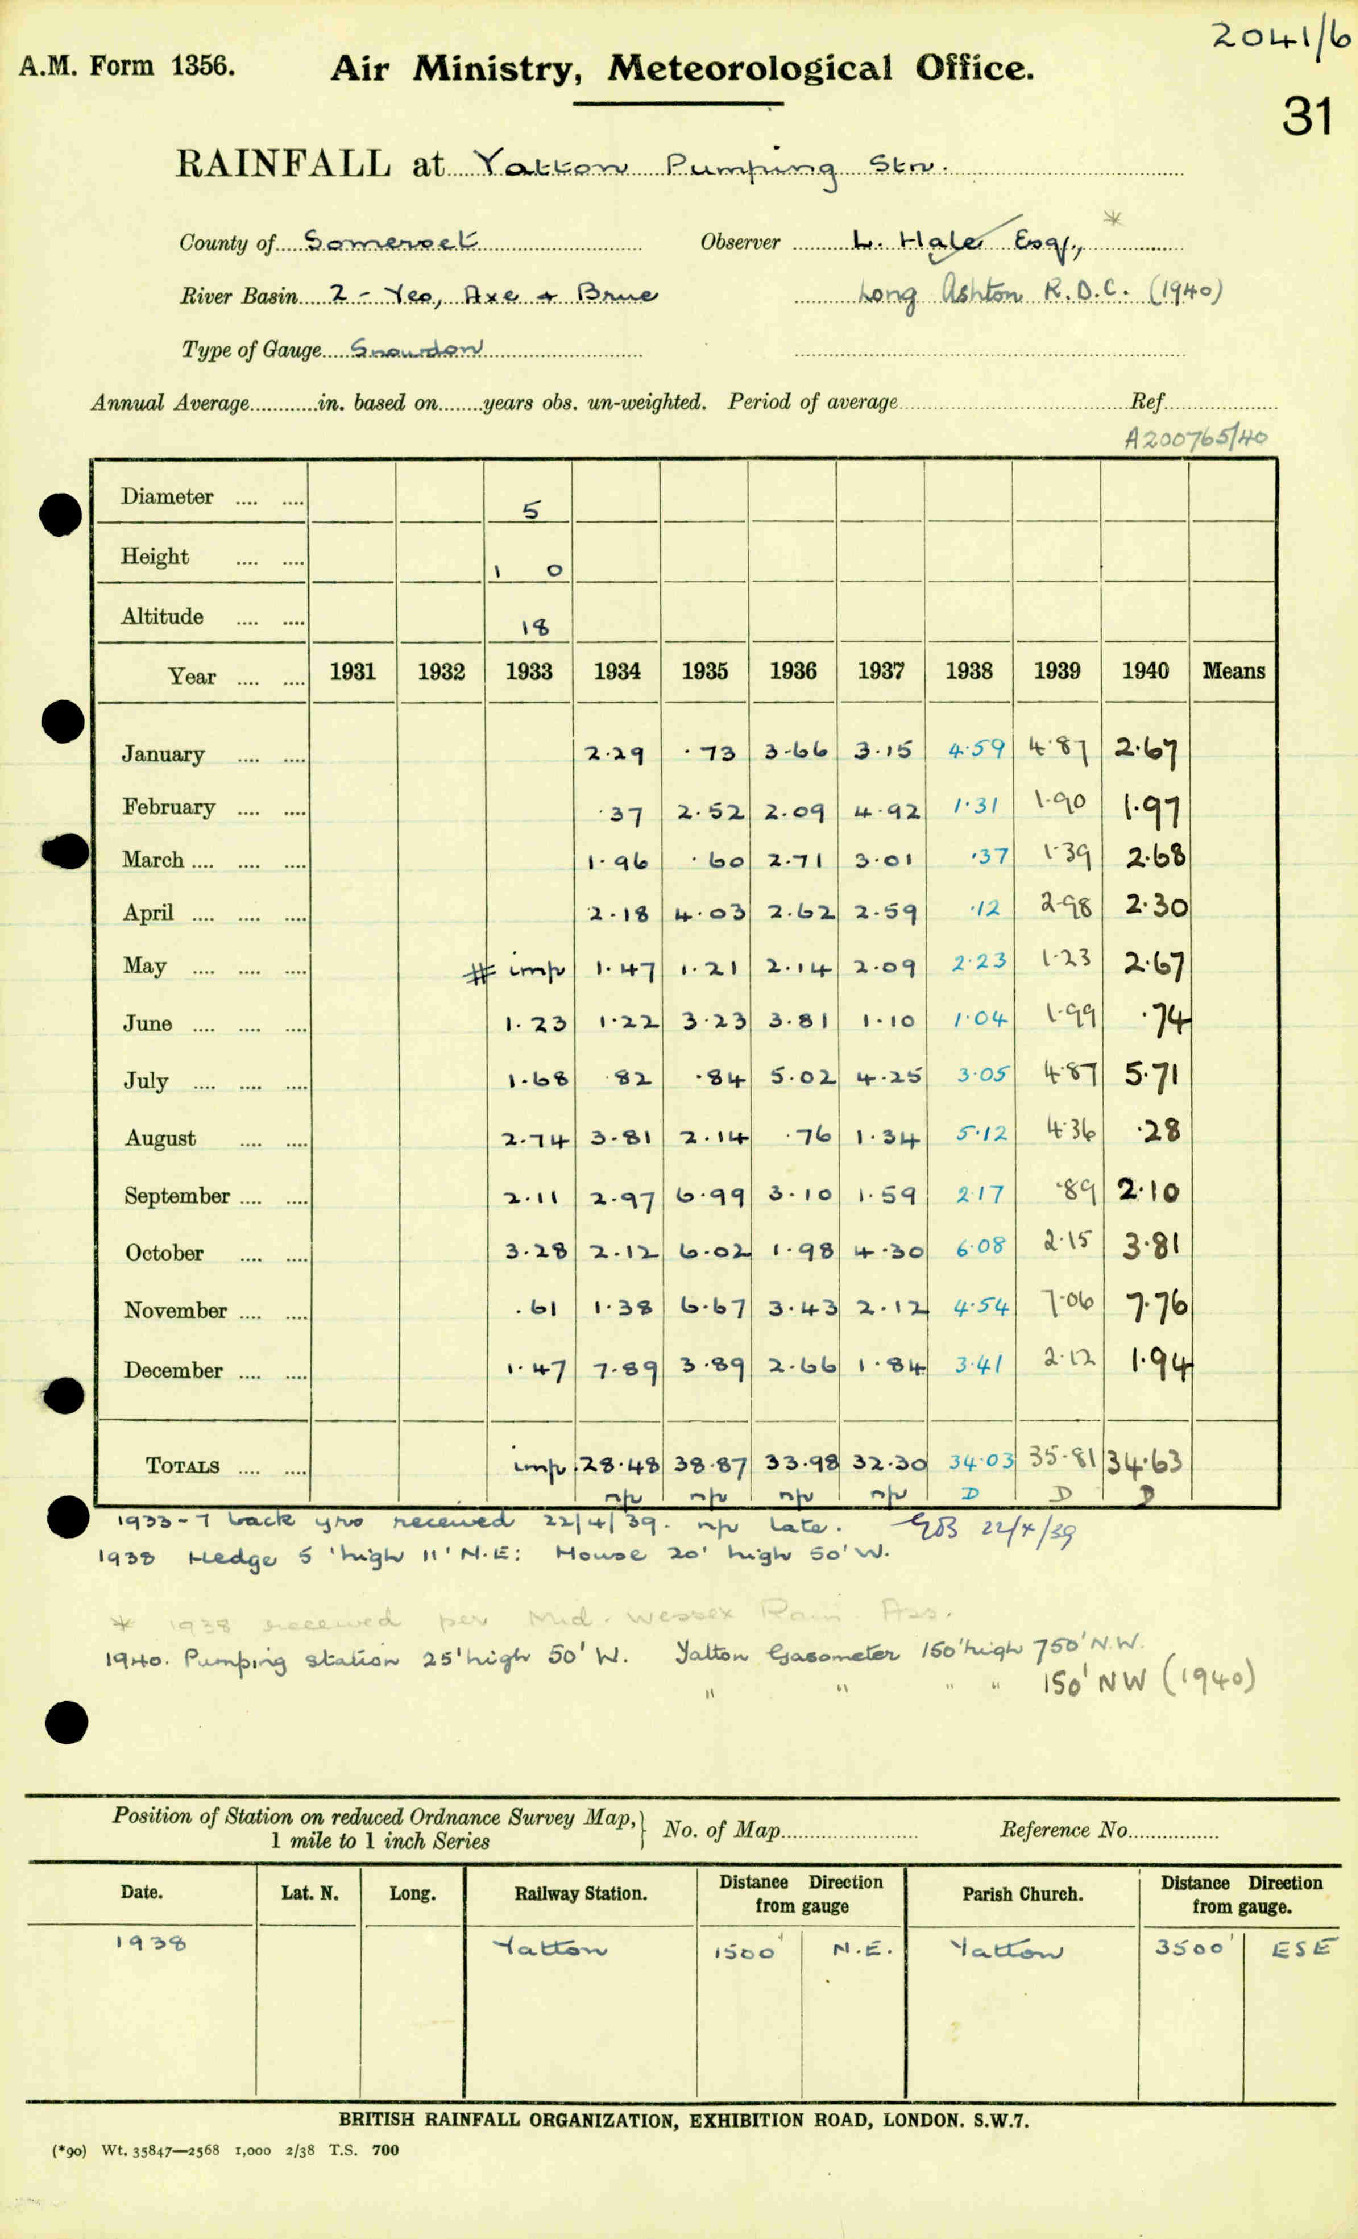 2041/6
A.M. Form 1356. Air Ministry, Meteorological Office.
31
RAINFALL at Yatton Pumping Stn.
County of Somerset Observer L. Hale Esq., *
River Basin 2 - Yeo, Axe + Brue Long Ashton R.D.C. (1940)
Type of Gauge Snowdon
Annual Average in. based on years obs. un-weighted. Period of average Ref.
A200765/40
Diameter .... .... 5
Height .... .... 1 0
Altitude .... .... 18
Year .... .... 1931 1932 1933 1934 1935 1936 1937 1938 1939 1940 Means
January .... .... 2.29 .73 3.66 3.15 4.59 4.87 2.67
February .... .... .37 2.52 2.09 4.92 1.31 1.90 1.97
March .... .... .... 1.96 .60 2.71 3.01 .37 1.39 2.68
April .... .... .... 2.18 4.03 2.62 2.59 .12 2.98 2.30
May .... .... .... # imp 1.47 1.21 2.14 2.09 2.23 1.23 2.67
June .... .... .... 1.23 1.22 3.23 3.81 1.10 1.04 1.99 .74
July .... .... .... 1.68 .82 .84 5.02 4.25 3.05 4.87 5.71
August .... .... 2.74 3.81 2.14 .76 1.34 5.12 4.36 .28
September .... .... 2.11 2.97 6.99 3.10 1.59 2.17 .89 2.10
October .... .... 3.28 2.12 6.02 1.98 4.30 6.08 2.15 3.81
November .... .... .61 1.38 6.67 3.43 2.12 4.54 7.06 7.76
December .... .... 1.47 7.89 3.89 2.66 1.84 3.41 2.12 1.94
TOTALS .... .... imp. 28.48 38.87 33.98 32.30 34.03 35.81 34.63
np np np np D D D
1933-7 back yrs received 22/4/39. np late. GDB 22/4/39
1938 Hedge 5' high 11' N.E: House 20' high 50' W.
* 1938 received per Mid. Wessex Rain. Ass.
1940. Pumping station 25' high 50' W. Yatton Gasometer 150' high 750' N.W.
" " " " 150' NW (1940)
Position of Station on reduced Ordnance Survey Map, } No. of Map Reference No.
1 mile to 1 inch Series
Date. Lat. N. Long. Railway Station. Distance Direction from gauge Parish Church. Distance Direction from gauge.
1938 Yatton 1500' N.E. Yatton 3500' ESE
BRITISH RAINFALL ORGANIZATION, EXHIBITION ROAD, LONDON. S.W.7.
(*90) Wt. 35847—2568 1,000 2/38 T.S. 700